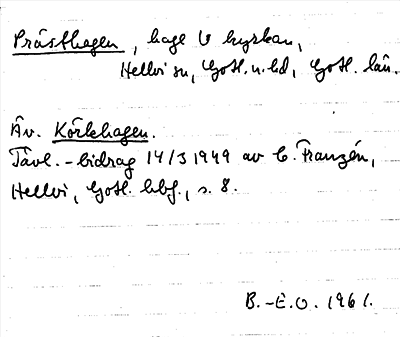 Prästhagen, hage V kyrkan,
Hellvi sn, Gotl. n. hd, Gotl. län.
Äv. Körkhagen.
Tävl.-bidrag 14/3 1949 av C. Franzén,
Hellvi, Gotl. hbf., s. 8.
B.-E.O. 1961.